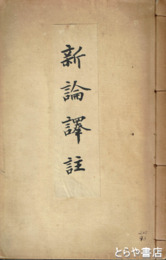 新論譯註
とらや書房